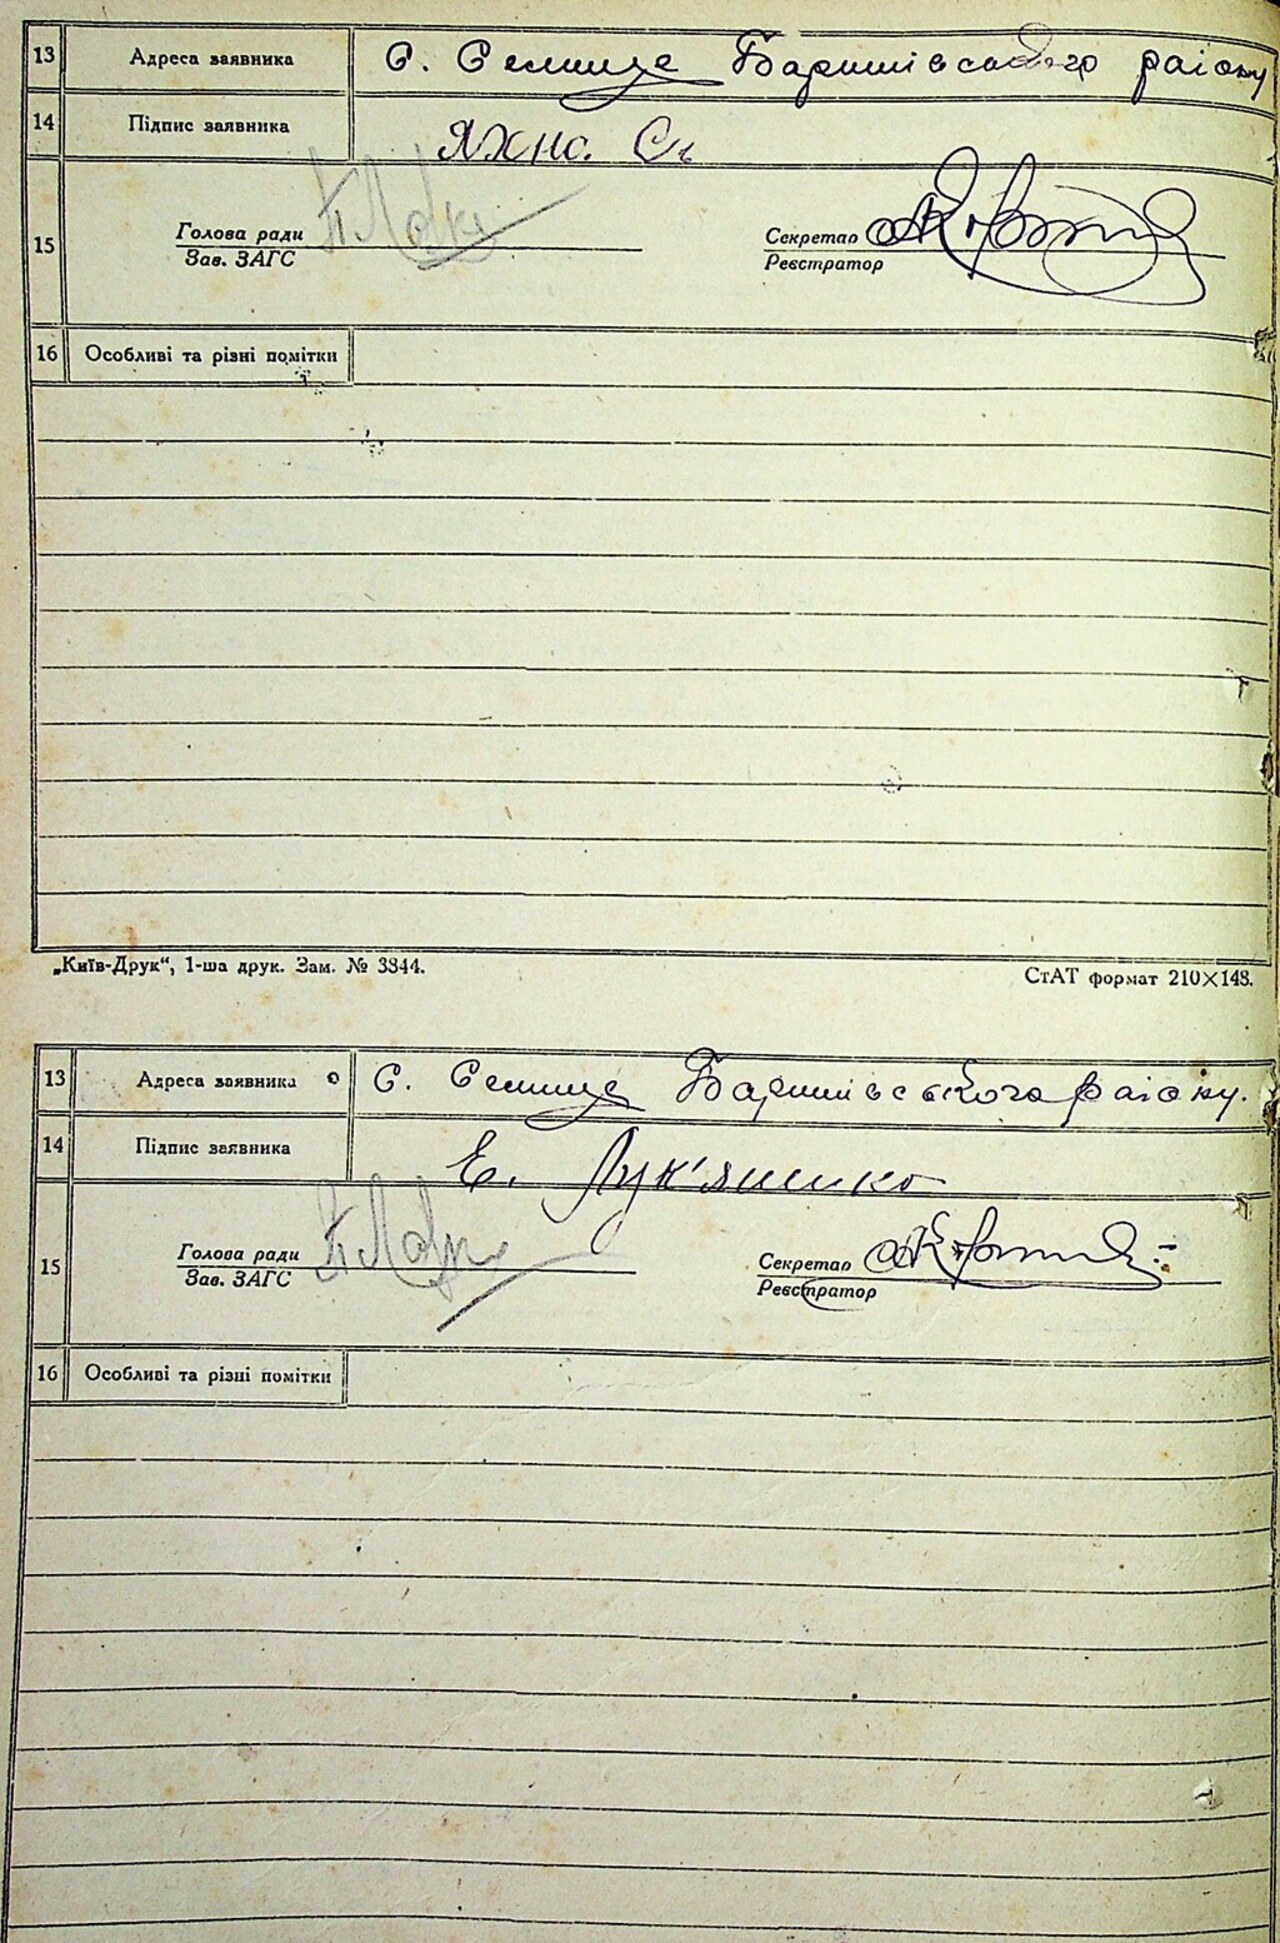 13 Адреса заявника С. Селище Баришівського району
14 Підпис заявника Яхно. С.
15 Голова ради
Зав. ЗАГС
Секретар
Реєстратор
16 Особливі та різні помітки
„Київ-Друк“, 1-ша друк. Зам. № 3344. СтАТ формат 210×148.
13 Адреса заявника С. Селище Баришівського району.
14 Підпис заявника Е. Лук'яненко
15 Голова ради
Зав. ЗАГС
Секретар
Реєстратор
16 Особливі та різні помітки